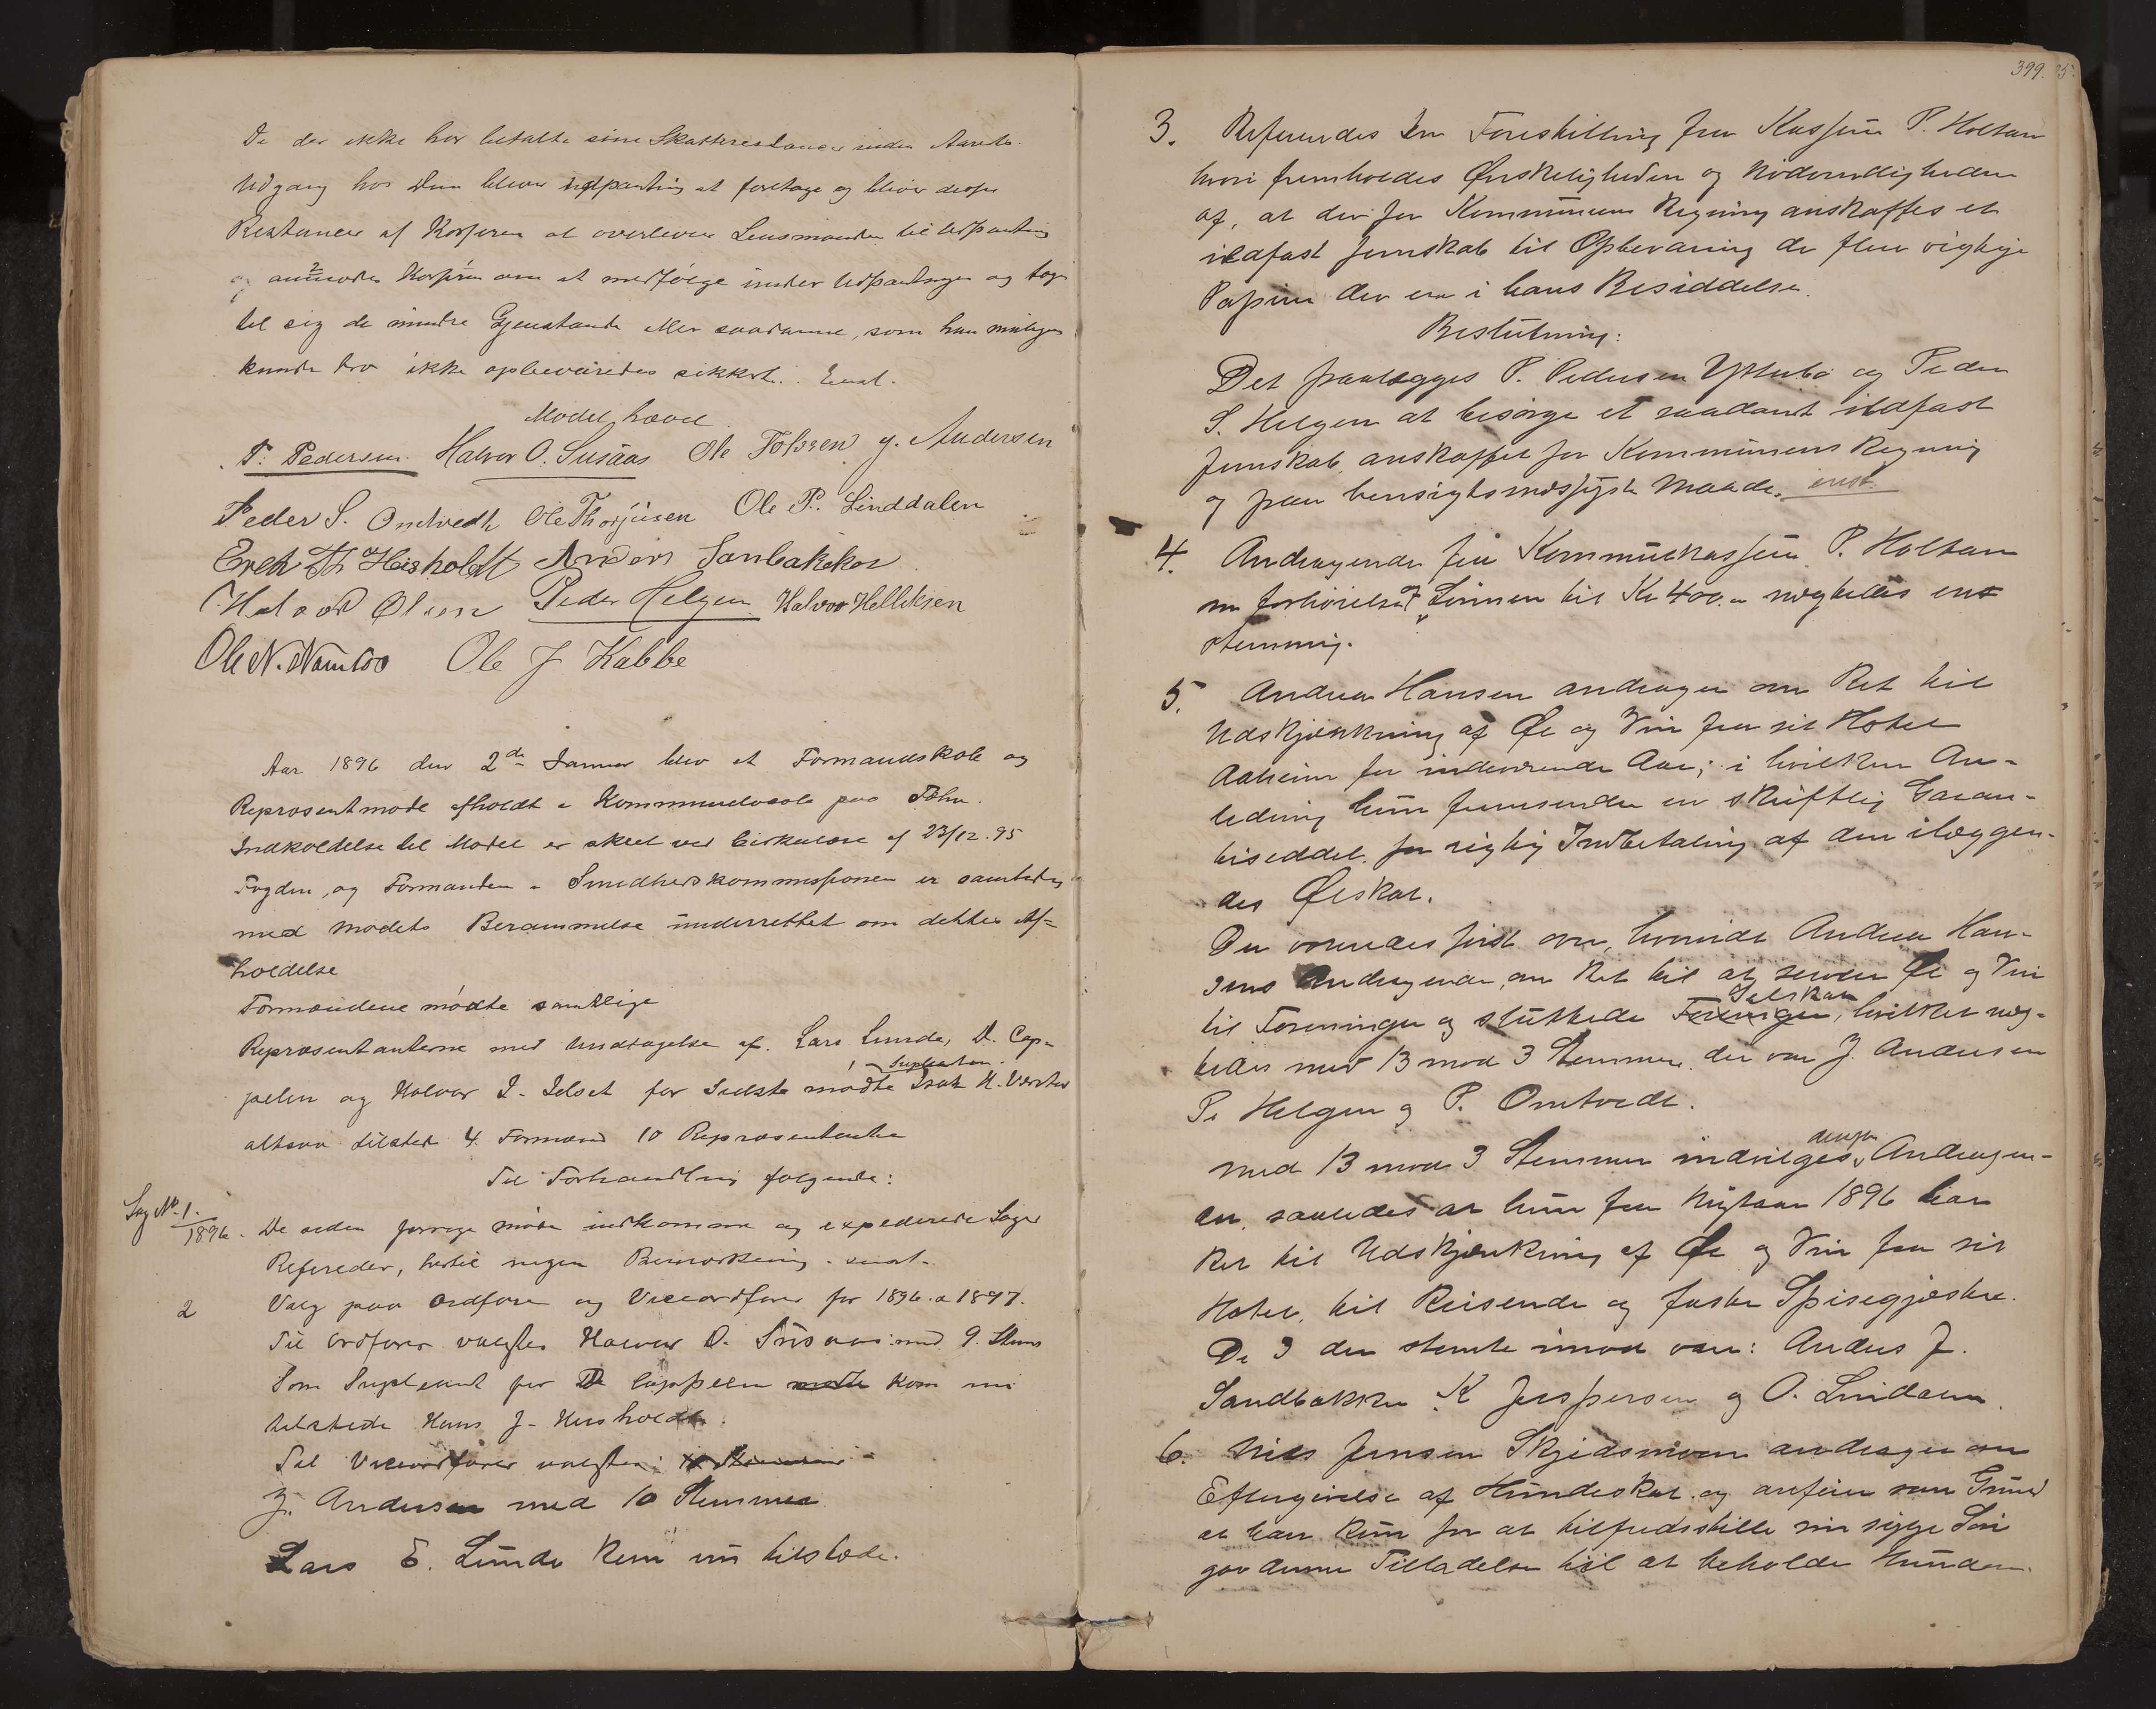 De der ikke har betalte sine Skatterestancer inden Aarets
Udgang hos dem bliver udpanting at foretage og bliver disse
Restancer af Kasseren at overlevere Lensmanden til Udpanting
og anmodes Kasseren om at medfølge under Udpantningen og tage
til sig de mindre Gjenstande eller saadanne, som han muligens
kunde tro ikke opbevaredes sikkert. Enst.
Mødet hævet
P. Pedersen. Halvor O. Susaas Ole Tofsen J. Andersen
Peder S. Omtvedt Ole Thorjusen Ole P. Linddalen
Erek Th Heisholdt Anders Sanbakken
Halvor Olsen Peder Helgen Halvor Helliksen
Ole N. Namløs Ole J Kabbe
Aar 1896 den 2de Januar blev et Formandskab og
Representmøde afholdt i Kommunelocale paa
Indkaldelse til Mødet er skeet ved Cirkulære af 23/12.95
Fogden, og Formanden i Sundhedskommissionen er samtidig
med Mødets Berammelse underrettet om dettes Af-
holdelse
Formændene mødte samtlige
Repræsentanterne med Undtagelse af Lars Lunde, D. Cap-
Suplanten
pelen og Halvor I. for Sidste mødte Isak H.
altsaa tilstede 4 Formænd 10 Repræsentanter
Til Forhandling følgende:
Sag No. 1. /1896. De siden forrige møde indkomne og expederede Sager
Refereder, hertil ingen Bemærkning. enst.
2 Valg paa Ordfører og Viceordfører for 1896 a 1897.
Til Ordfører valgtes Halvor O. Susaas med 9. Stems
Som Supleant for D Cappelen mødte kom nu
tilstede Hans J. Heisholdt.
Til Viceordfører valgtes:
J. Andersen med 10 Stemmer
Lars E. Lunde kom nu tilstede.
399.
3. Refereredes en Forestilling fra Kasserer P. Holtan
hvori fremholdes Ønskeligheden og Nødvendigheden
af, at der for Kommunens Regning anskaffes et
ildfast Jernskab til Opbevaring de flere vigtige
Papirer der ere i hans Besiddelse.
Beslutning:
Det paalægges P. Pedersen Ytterbø og Peder
S. Helgen at besørge et saadant ildfast
Jernskab anskaffet for Kommunens Regning
og paa hensigtsmæssigste Maade. enst.
4. Andragende fra Kommunekasserer P. Holtan
om forhøielse af Lønnen til Kr 400.- nægtedes en-
stemmig.
5. Andrea Hansen andrager om Ret til
Udskjænkning af Øl og Vin fra sit Hotel
Aaheim for indeværende Aar; i hvilken An-
ledning hun fremsender en skriftlig Garan-
tiseddel for rigtig Indbetaling af den ilæggen-
des Ølskat.
Der voteredes først over, hvorvidt Andrea Han-
sens Andragende, om Ret til at servere Øl og Vin
Selskab
til Foreninger og sluttede Foreninger, hvilket næg-
tedes med 13 mod 3 Stemmer, der var J. Andersen
P. Helgen og P. Omtvedt.
Med 13 mod 3 Stemmer indvilges dennes Andragen-
de, saaledes at hun fra Nytaar 1896 har
Ret til Udskjænkning af Øl og Vin fra sit
Hotel, til Reisende og faste Spisegjæster.
De 3 der stemte imod var: Anders J.
Sandbakken K Jespersen og O. Lindalen.
6. Nils Jensen Skjedsmoen andrager om
Eftergivelse af Hundeskat og anfører som Grund
at han kun for at tilfredsstille sin syge Søn
gav denne Tilladelse til at beholde Hunden.